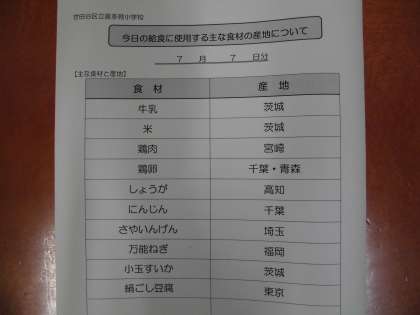 世田谷区立喜多見小学校
今日の給食に使用する主な食材の産地について
7 月 7 日分
【主な食材と産地】
食材 産地
牛乳 茨城
米 茨城
鶏肉 宮崎
鶏卵 千葉・青森
しょうが 高知
にんじん 千葉
さやいんげん 埼玉
万能ねぎ 福岡
小玉すいか 茨城
絹ごし豆腐 東京